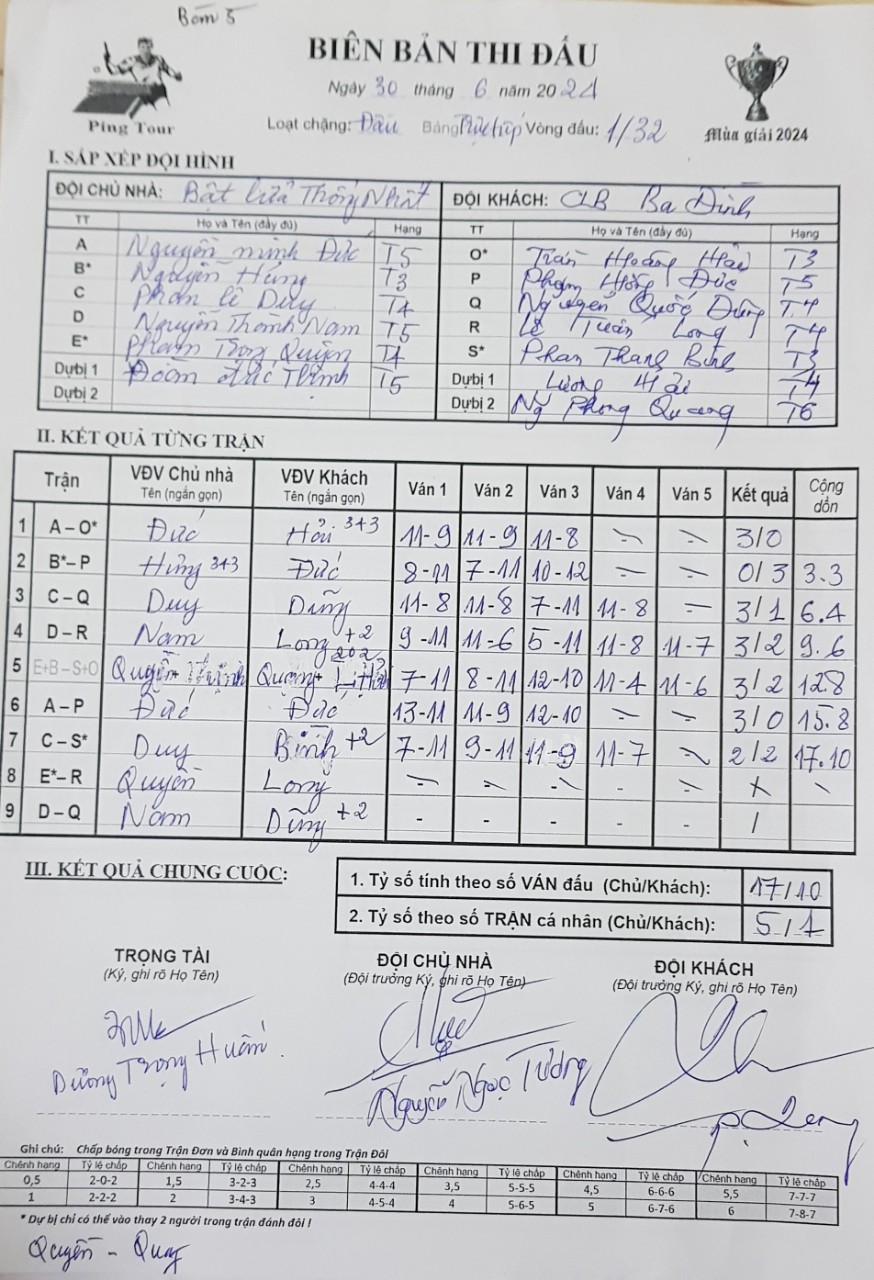 Bàn 5
BIÊN BẢN THI ĐẤU
Ngày 30 tháng 6 năm 2024
Ping Tour
Loạt chặng: Đấu Bảng Trực tiếp Vòng đấu: 1/32
Mùa giải 2024
I. SẮP XẾP ĐỘI HÌNH
ĐỘI CHỦ NHÀ: Bật lửa Thống Nhất ĐỘI KHÁCH: CLB Ba Đình
TT Họ và Tên (đầy đủ) Hạng TT Họ và Tên (đầy đủ) Hạng
A Nguyễn Minh Đức T5 O* Trần Hoàng Hải T3
B* Nguyễn Hùng T3 P Phạm Hồng Đức T5
C Phan lê Duy T4 Q Nguyễn Quốc Dũng T4
D Nguyễn Thành Nam T5 R Lê Tuấn Long T4
E* Phạm Trọng Quyền T4 S* Phan Thanh Bình T3
Dự bị 1 Đoàn Đức Thịnh T5 Dự bị 1 Lương Hải T4
Dự bị 2 Dự bị 2 Ng Phong Quang T6
II. KẾT QUẢ TỪNG TRẬN
Trận VĐV Chủ nhà Tên (ngắn gọn) VĐV Khách Tên (ngắn gọn) Ván 1 Ván 2 Ván 3 Ván 4 Ván 5 Kết quả Cộng dồn
1 A – O* Đức Hải 3+3 11-9 11-9 11-8 - - 3/0
2 B*– P Hùng 3+3 Đức 8-11 7-11 10-12 - - 0/3 3.3
3 C – Q Duy Dũng 11-8 11-8 7-11 11-8 - 3/1 6.4
4 D – R Nam Long +2 9-11 11-6 5-11 11-8 11-7 3/2 9.6
5 E+B – S+O Quyền+Thịnh Quang+L.Hải 202 7-11 8-11 12-10 11-4 11-6 3/2 12.8
6 A – P Đức Đức 13-11 11-9 12-10 - - 3/0 15.8
7 C – S* Duy Bình +2 7-11 9-11 11-9 11-7 - 2/2 17.10
8 E*– R Quyền Long - - - - - x \
9 D – Q Nam Dũng +2 - - - - - /
III. KẾT QUẢ CHUNG CUỘC:
1. Tỷ số tính theo số VÁN đấu (Chủ/Khách): 17/10
2. Tỷ số theo số TRẬN cá nhân (Chủ/Khách): 5/1
TRỌNG TÀI ĐỘI CHỦ NHÀ ĐỘI KHÁCH
(Ký, ghi rõ Họ Tên) (Đội trưởng Ký, ghi rõ Họ Tên) (Đội trưởng Ký, ghi rõ Họ Tên)
Dương Trọng Huấn.
Nguyễn Ngọc Tường
Ghi chú: Chấp bóng trong Trận Đơn và Bình quân hạng trong Trận Đôi
Chênh hạng Tỷ lệ chấp Chênh hạng Tỷ lệ chấp Chênh hạng Tỷ lệ chấp Chênh hạng Tỷ lệ chấp Chênh hạng Tỷ lệ chấp Chênh hạng Tỷ lệ chấp
0,5 2-0-2 1,5 3-2-3 2,5 4-4-4 3,5 5-5-5 4,5 6-6-6 5,5 7-7-7
1 2-2-2 2 3-4-3 3 4-5-4 4 5-6-5 5 6-7-6 6 7-8-7
* Dự bị chỉ có thể vào thay 2 người trong trận đánh đôi !
Quyền - Quang